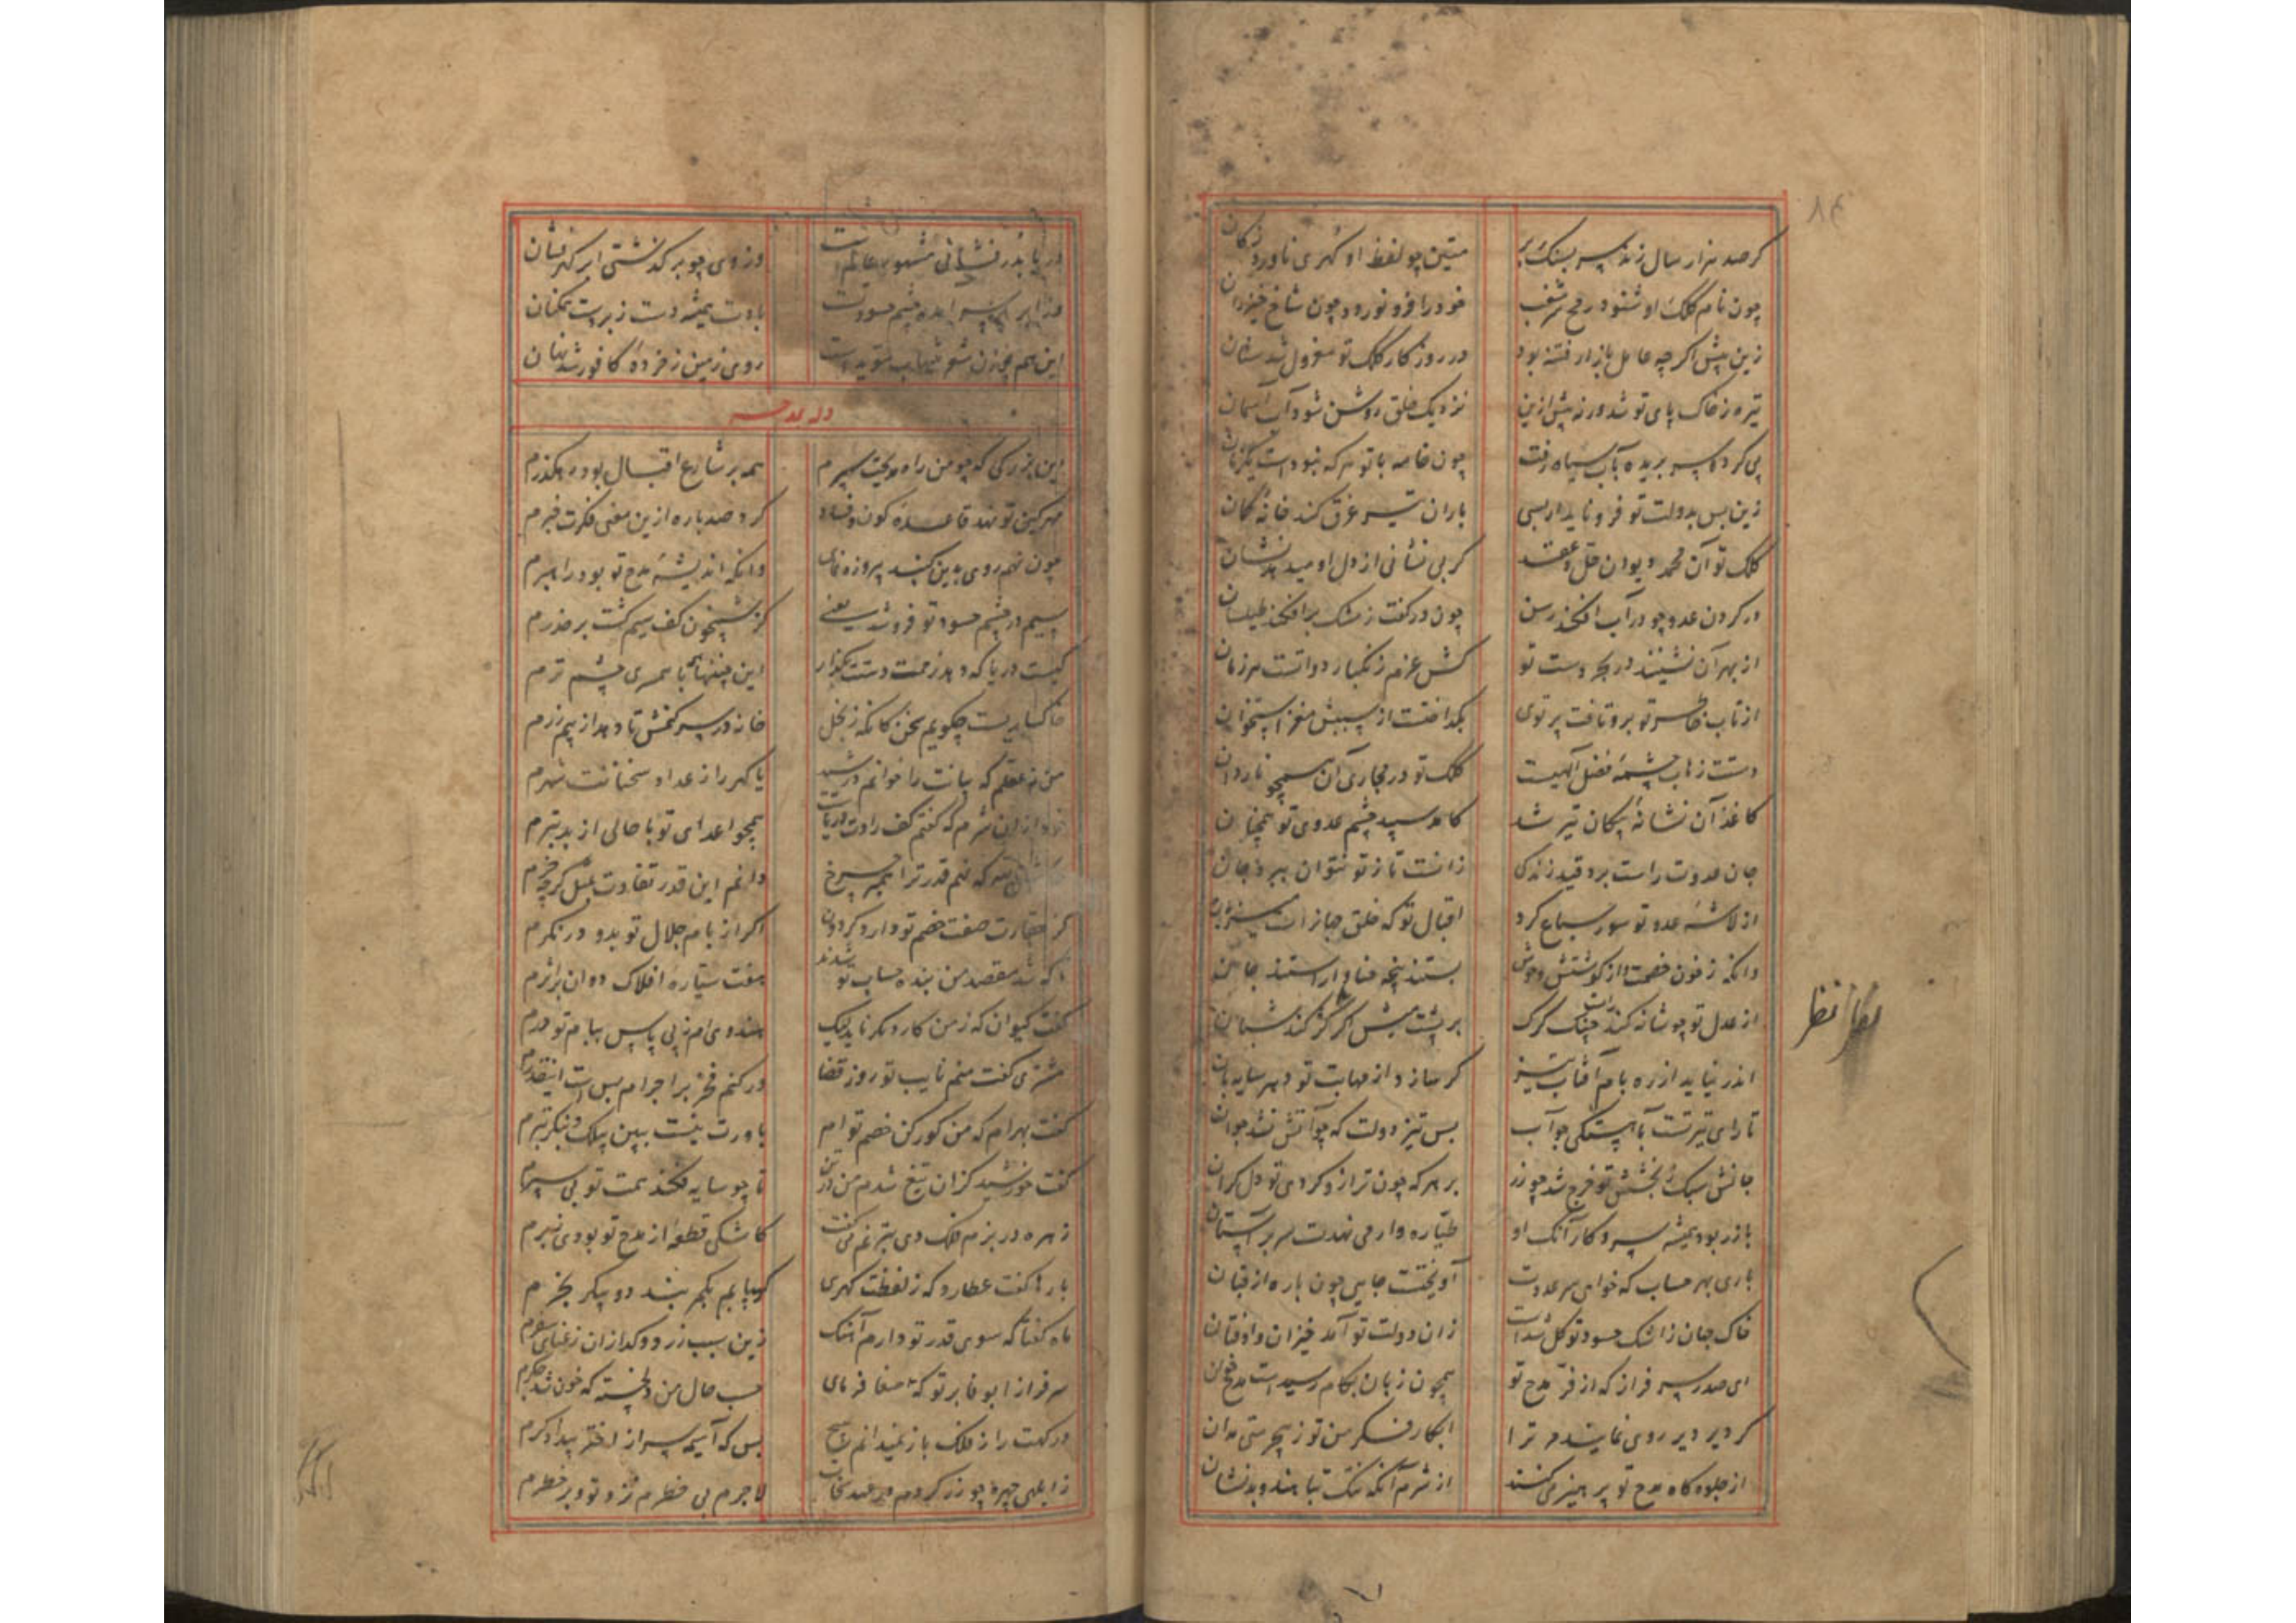 گر صد هزار سال زند سر بسنگ بر
متین چو لفظ او گهری ناورد ز کان
چون نام کلک او شنود رمح سر شغب
خود را فرو نورد چون شاخ خیزران
زین پیش اگر چه عامل بازار فتنه بود
در روزگار کلک تو معزول شد سنان
تیره ز خاک پای تو شد ورنه پیش ازین
نزدیک خلق روشن شود آب آسمان
پی کرد سر بریده بآب سیاه رفت
چون خامه با تو هر که نبودست
زین پس بدولت تو فرو ناید از بسی
باران تیر غرق کند خانهٔ کمان
کلک تو آن محمد
گر بی نشانی از دل او میدهد نشان
در گردن عدو چو در آب افکند رسن
چون در کفت ز مشک برافکند طیلسان
از بهر آن نشیند در بحر دست تو
کش عزم زنگبار دواتست هر زمان
از تاب خاطر تو برو تافت پرتوی
بگداخت از سببش مغز استخوان
دستت زهاب چشمهٔ فضل آلهیست
کلک تو در مجاری آن همچو ناودان
کاغذ آن نشانهٔ پیکان تیر شد
کامد سپید چشم عدوی تو همچنان
جان عدوت راست برو قید زندگی
زانست تا ز تو نتوان ببرد جان
از لاشهٔ عدو تو سور سباع کرد
اقبال تو که خلق جهانراست میزبان
وانگه ز خون خصمت و از گوشتش وحوش
بستند پنجه حنا و آراستند
از عدل تو چو شانه کند چنگ گرگ
بر پشت میش اگر گذر کند شبان
اندر نیاید از ره بام آفتاب تیز
گر سازد از مهابت تو دهر سایه بان
تا رای تیر تست بآهستگی چو آب
بس تیز دولت که چو آتش نشد جوان
جانش سبک ببخشش تو خرج شد چو زر
بر هر که چون ترازو کردی تو دل گران
با زر بود همیشه سر و کار آنک او
طیاره وار می نهدت سر بر آستان
باری بهر حساب که خواهی سر عدوت
آویختست جایی چون باره از قبان
خاک جهان ز اشک حسود تو گل شدست
زان دولت تو آمد خیزان و اوفتان
ای صدر سرفراز که از فرّ مدح تو
همچون زبان بکام رسیدست مدح خوان
گر دیر دیر روی نمایند مر ترا
ابکار فکر من تو ز بیحرمتی مدان
از جلوه گاه مدح تو پرهیز می کنند
از شرم آنکه نیک تباهند و بد نشان
دریا بدر فشانی مشهور عالم است
وز وی چو بر گذشتی ابر گهر فشان
بادت همیشه دست زبردست همگنان
روی زمین ز خردهٔ کافور شد نهان
وله یمدحه
این بزرگی که چو من راه مدیحت سپرم
همه بر شارع اقبال بود رهگذرم
مهر کین تو نهد قاعدهٔ کون و فساد
کرد صد باره ازین معنی فکرت خبرم
چون نهم روی بدین گنبد پیروزه نمای
وانگه اندیشهٔ مدح تو بود راهبرم
سیم در چشم حسود تو فرو شد یعنی
کز شبیخون کف سیم کشت بر حذرم
کیست دریا که دهد زحمت دستت بگذار
این چنینها با همسری چشم ترم
خاکساریست چگویم سخن کان که ز بخل
خانه در سر کنمش تا دهد از بیم زرم
من نه عقلم که بیانت را خوانم
یا گهر را ز عداد سخنانت شمرم
خود ازان شرم که گفتم کف رادت دریاست
همچو اعدای تو با حالی از بد بترم
که نهم قدر ترا همبر چرخ
دانم این قدر تفاوت بمثل گرچه خرم
کز حقارت صفت خصم تو دارد گردون
اگر از بام جلال تو بدو در نگرم
تا که شد مقصد من بنده حساب تو شدند
هفت سیّارهٔ افلاک دوان بر اثرم
گفت کیوان که ز من کار دگر ناید لیک
هندوی ام ز پی پاس ببام تو درم
مشتری گفت منم نایب تو روز قضا
ور کنم فخر بر اجرام بس است اینقدرم
گفت بهرام که من گورکن خصم تو ام
باورت نیست ببین بیلک و بنگر تبرم
گفت خورشید کزان تیغ شدم من
تا چو سایه فکند همت تو بی سپرم
زهره در بزم فلک دی بترنم می گفت
کاشکی قطعهٔ از مدح تو بودی زبرم
بارها گفت عطارد که ز لفظت گهری
گر بیابم بکم بیشد دو پیکر بخرم
ماه گفتا که سوی قدر تو دارم آهنگ
زین سبب زرد و گدازان ز عنای سفرم
سرفرازا بوفا بر تو که اصغا فرمای
حسب حال من دلخسته که خون شد جگرم
درگهت را ز فلک باز نمیدانم هیچ
بس که آسیمه سر از اختر بیدادگرم
ز ابلهی چهره چو زر کردم
لاجرم بی خطرم نزد تو و بر خطرم